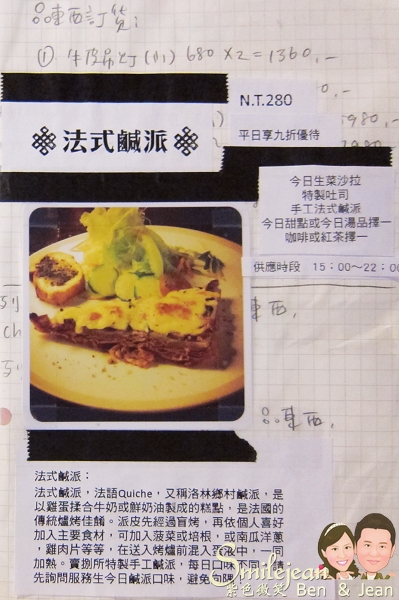 品東西訂貨:
① 牛皮吊灯(小) 680 X 2 = 1360,-
N.T.280
0,-
法式鹹派
平日享九折優待
980,-
今日生菜沙拉
特製吐司
手工法式鹹派
今日甜點或今日湯品擇一
咖啡或紅茶擇一
供應時段 15：00～22：00
東西,
品東西,
法式鹹派：
法式鹹派，法語Quiche，又稱洛林鄉村鹹派，是
以雞蛋揉合牛奶或鮮奶油製成的糕點，是法國的
傳統爐烤佳餚。派皮先經過盲烤，再依個人喜好
加入主要食材，可加入菠菜或培根，或南瓜洋蔥
，雞肉片等等，在送入烤爐前混入蛋液中，一同
加熱。賣捌所特製手工鹹派，每日口味不同，
先詢問服務生今日鹹派口味，避免
Smilejean
紫色微笑 Ben & Jean